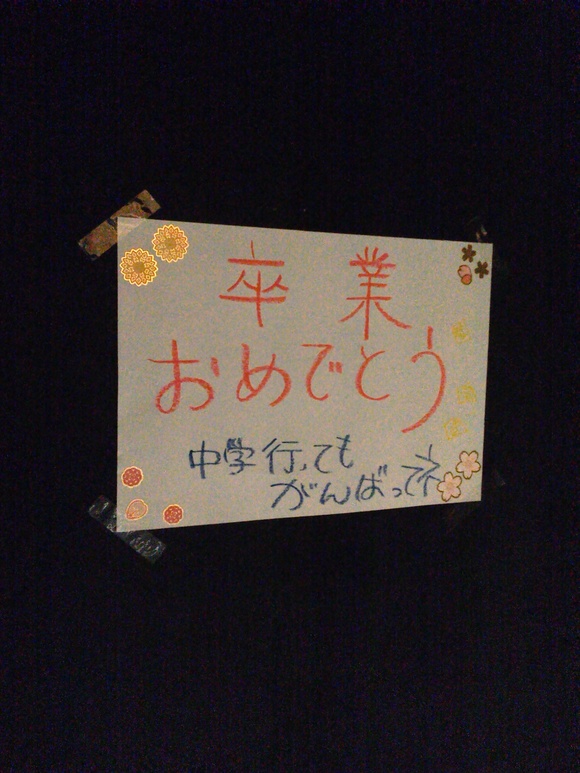 卒業
おめでとう
中学行っても
がんばってネ